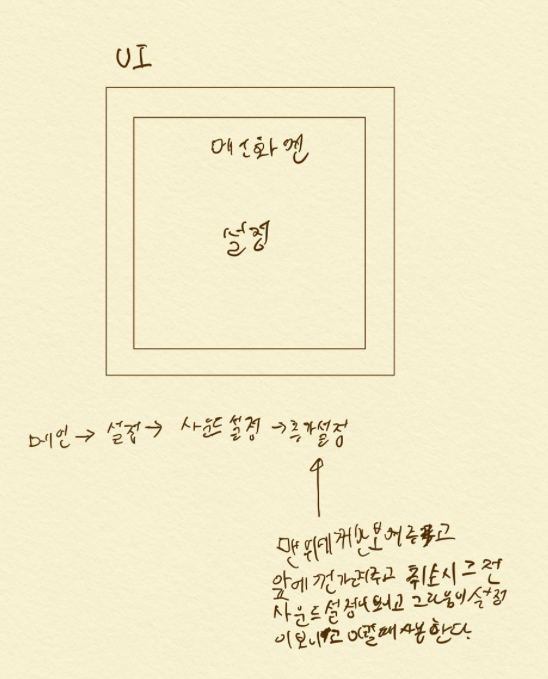 UI
메인화면
설정
메인 → 설정 → 사운드 설정 → 추가설정
맨 위에 꺼만 보여주고
앞에 껀 가려주고 취소시 그 전
사운드 설정이 보이고 그 다음이 설정
이 보이고 이럴때 사용한다.